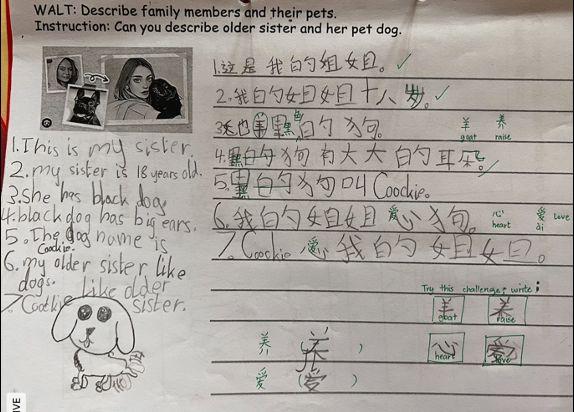 WALT: Describe family members and their pets.
Instruction: Can you describe older sister and her pet dog.
1.This is my sister.
2.my sister is 18 years old.
3.She has black dog.
4.black dog has big ears.
5.The dog name is
Coockie.
6.my older sister like
dogs.
7.Coockie like older
sister.
1.这是我的姐姐。✓
2.我的姐姐十八岁。✓
白勺狗。
羊 养
goat raise
4.黑白勺狗有大大白勺耳朵。✓
5.黑白勺狗叫Coockie。
6.我白勺姐姐爱心狗。
心 爱 love
heart ai
7.Coockie 爱心我白勺姐姐。
Try this challenge; write;
羊 养
goat raise
心 爱
heart love
养 ( 养 )
爱 ( 爱 )
IVE